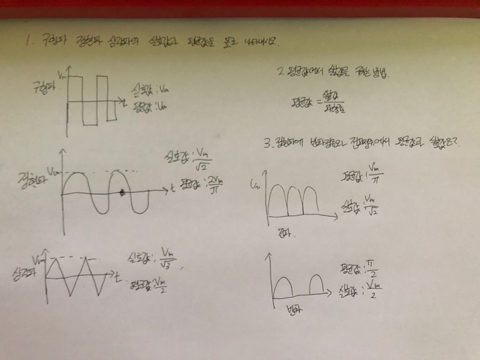 1. 구형파 정현파 삼각파의 실효값과 평균값을 모두 나타내시오.
구형파
Vm
t
실효값 : Vm
평균값 : Vm
정현파
Vm
t
실효값 : Vm/√2
평균값 : 2Vm/π
삼각파
Vm
t
실효값 : Vm/√3
평균값 : Vm/2
2. 평균값에서 실효값 구하는 방법.
평균값 = 실효값/파형률
3. 정현파에 반파정류와 전파정류에서 평균값과 실효값은?
Vm
전파.
평균값 : Vm/π
실효값 : Vm/√2
반파
평균값 : π/2
실효값 : Vm/2